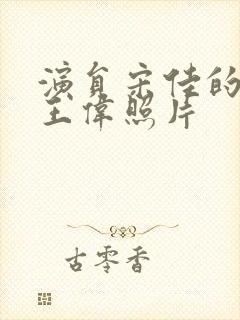 演员宋佳的
王偉照片
古零香